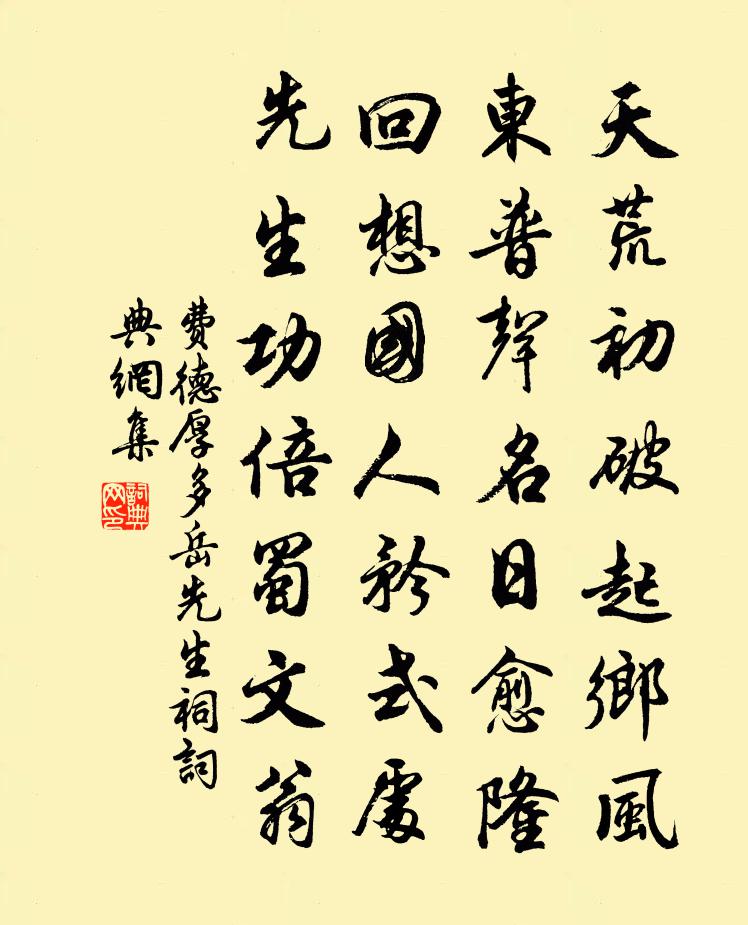 天荒初破起鄉風
東普聲名日愈隆
回想國人矜式處
先生功倍蜀文翁
費德厚多岳先生祠詞
典網集
詞典
网印